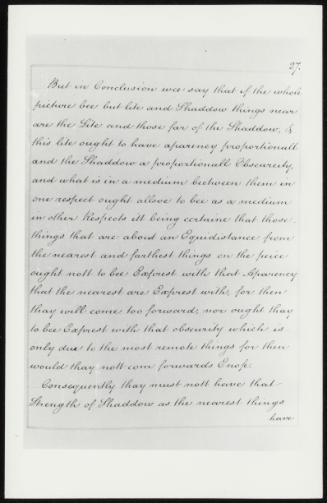 27.
But in Conclusion wee say that if the whole
picture bee but lite and Shaddow things near
are the Lite and those far of the Shaddow, &
this lite ought to have aparency proportionall
and the Shaddow a proportionall Obscureity,
and what is in a medium beetween them in
one respect ought allsoe to bee as a medium
in other Respects itt being certaine that those
things that are about an Equidistance from
the nearest and farthest things on the peice
ought nott to bee Exprest with that Aparency
that the nearest are Exprest with, for then
thay will come too forward; nor ought thay
to bee Exprest with that obscurity which is
only due to the most remote things for then
would thay nott com forwards Enofe.
Consequently thay must nott have that
Strength of Shaddow as the nearest things
have